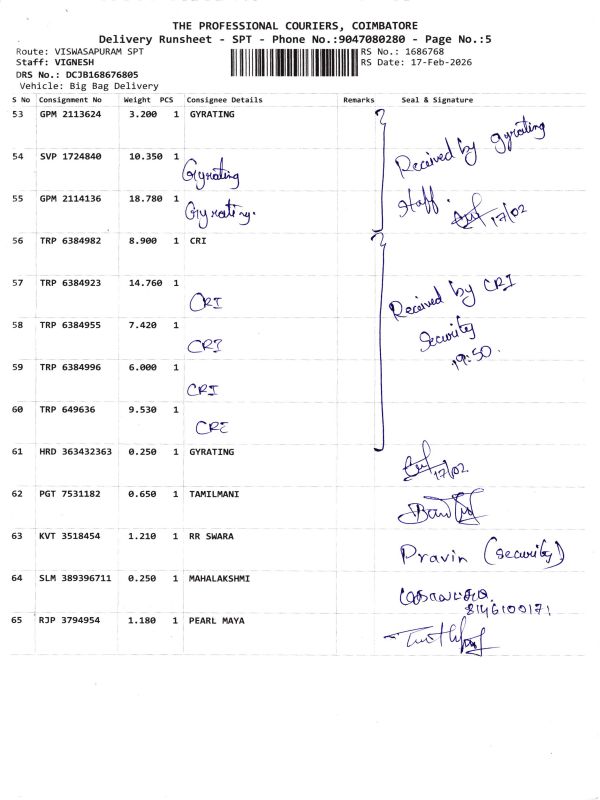 THE PROFESSIONAL COURIERS, COIMBATORE
Delivery Runsheet - SPT - Phone No.:9047080280 - Page No.:5
Route: VISWASAPURAM SPT RS No.: 1686768
Staff: VIGNESH RS Date: 17-Feb-2026
DRS No.: DCJB168676805
Vehicle: Big Bag Delivery
S No Consignment No Weight PCS Consignee Details Remarks Seal & Signature
53 GPM 2113624 3.200 1 GYRATING
Received by Gyrating
54 SVP 1724840 10.350 1
Gyrating
55 GPM 2114136 18.780 1 Staff.
Gyrating. 17/02
56 TRP 6384982 8.900 1 CRI
57 TRP 6384923 14.760 1
CRI Received by CRI
58 TRP 6384955 7.420 1 Security
CRI 19:50.
59 TRP 6384996 6.000 1
CRI
60 TRP 649636 9.530 1
CRI
61 HRD 363432363 0.250 1 GYRATING
17/02
62 PGT 7531182 0.650 1 TAMILMANI
63 KVT 3518454 1.210 1 RR SWARA
Pravin (Security)
64 SLM 389396711 0.250 1 MAHALAKSHMI
8146100171
65 RJP 3794954 1.180 1 PEARL MAYA